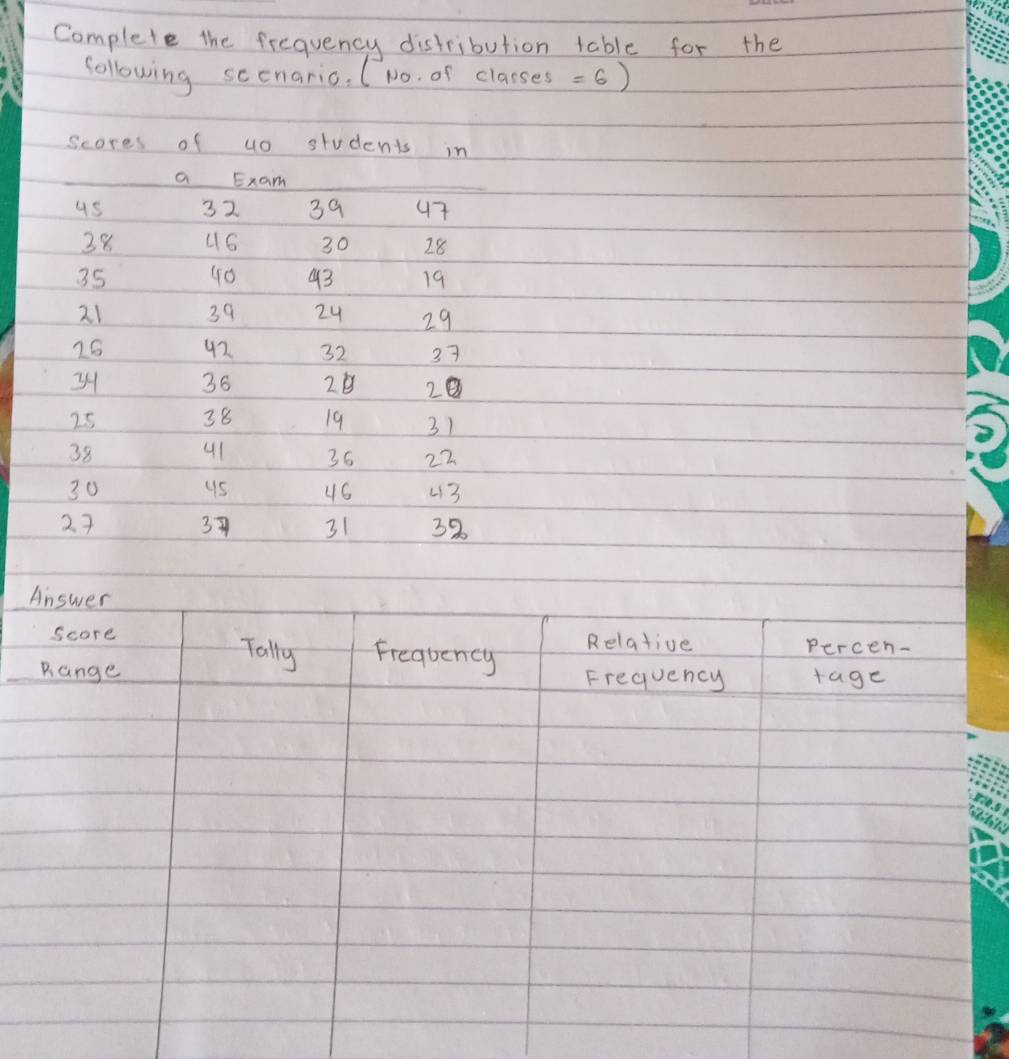 Complete the frequency distribution table for the
following scenario. (No. of classes = 6)
Scores of 40 students in
a Exam
45 32 39 47
38 46 30 28
35 40 43 19
21 39 24 29
26 42 32 37
34 36 28 20
25 38 19 31
38 41 36 22
30 45 46 43
27 37 31 32
Answer
Score Range Tally Frequency Relative Frequency Percen-tage